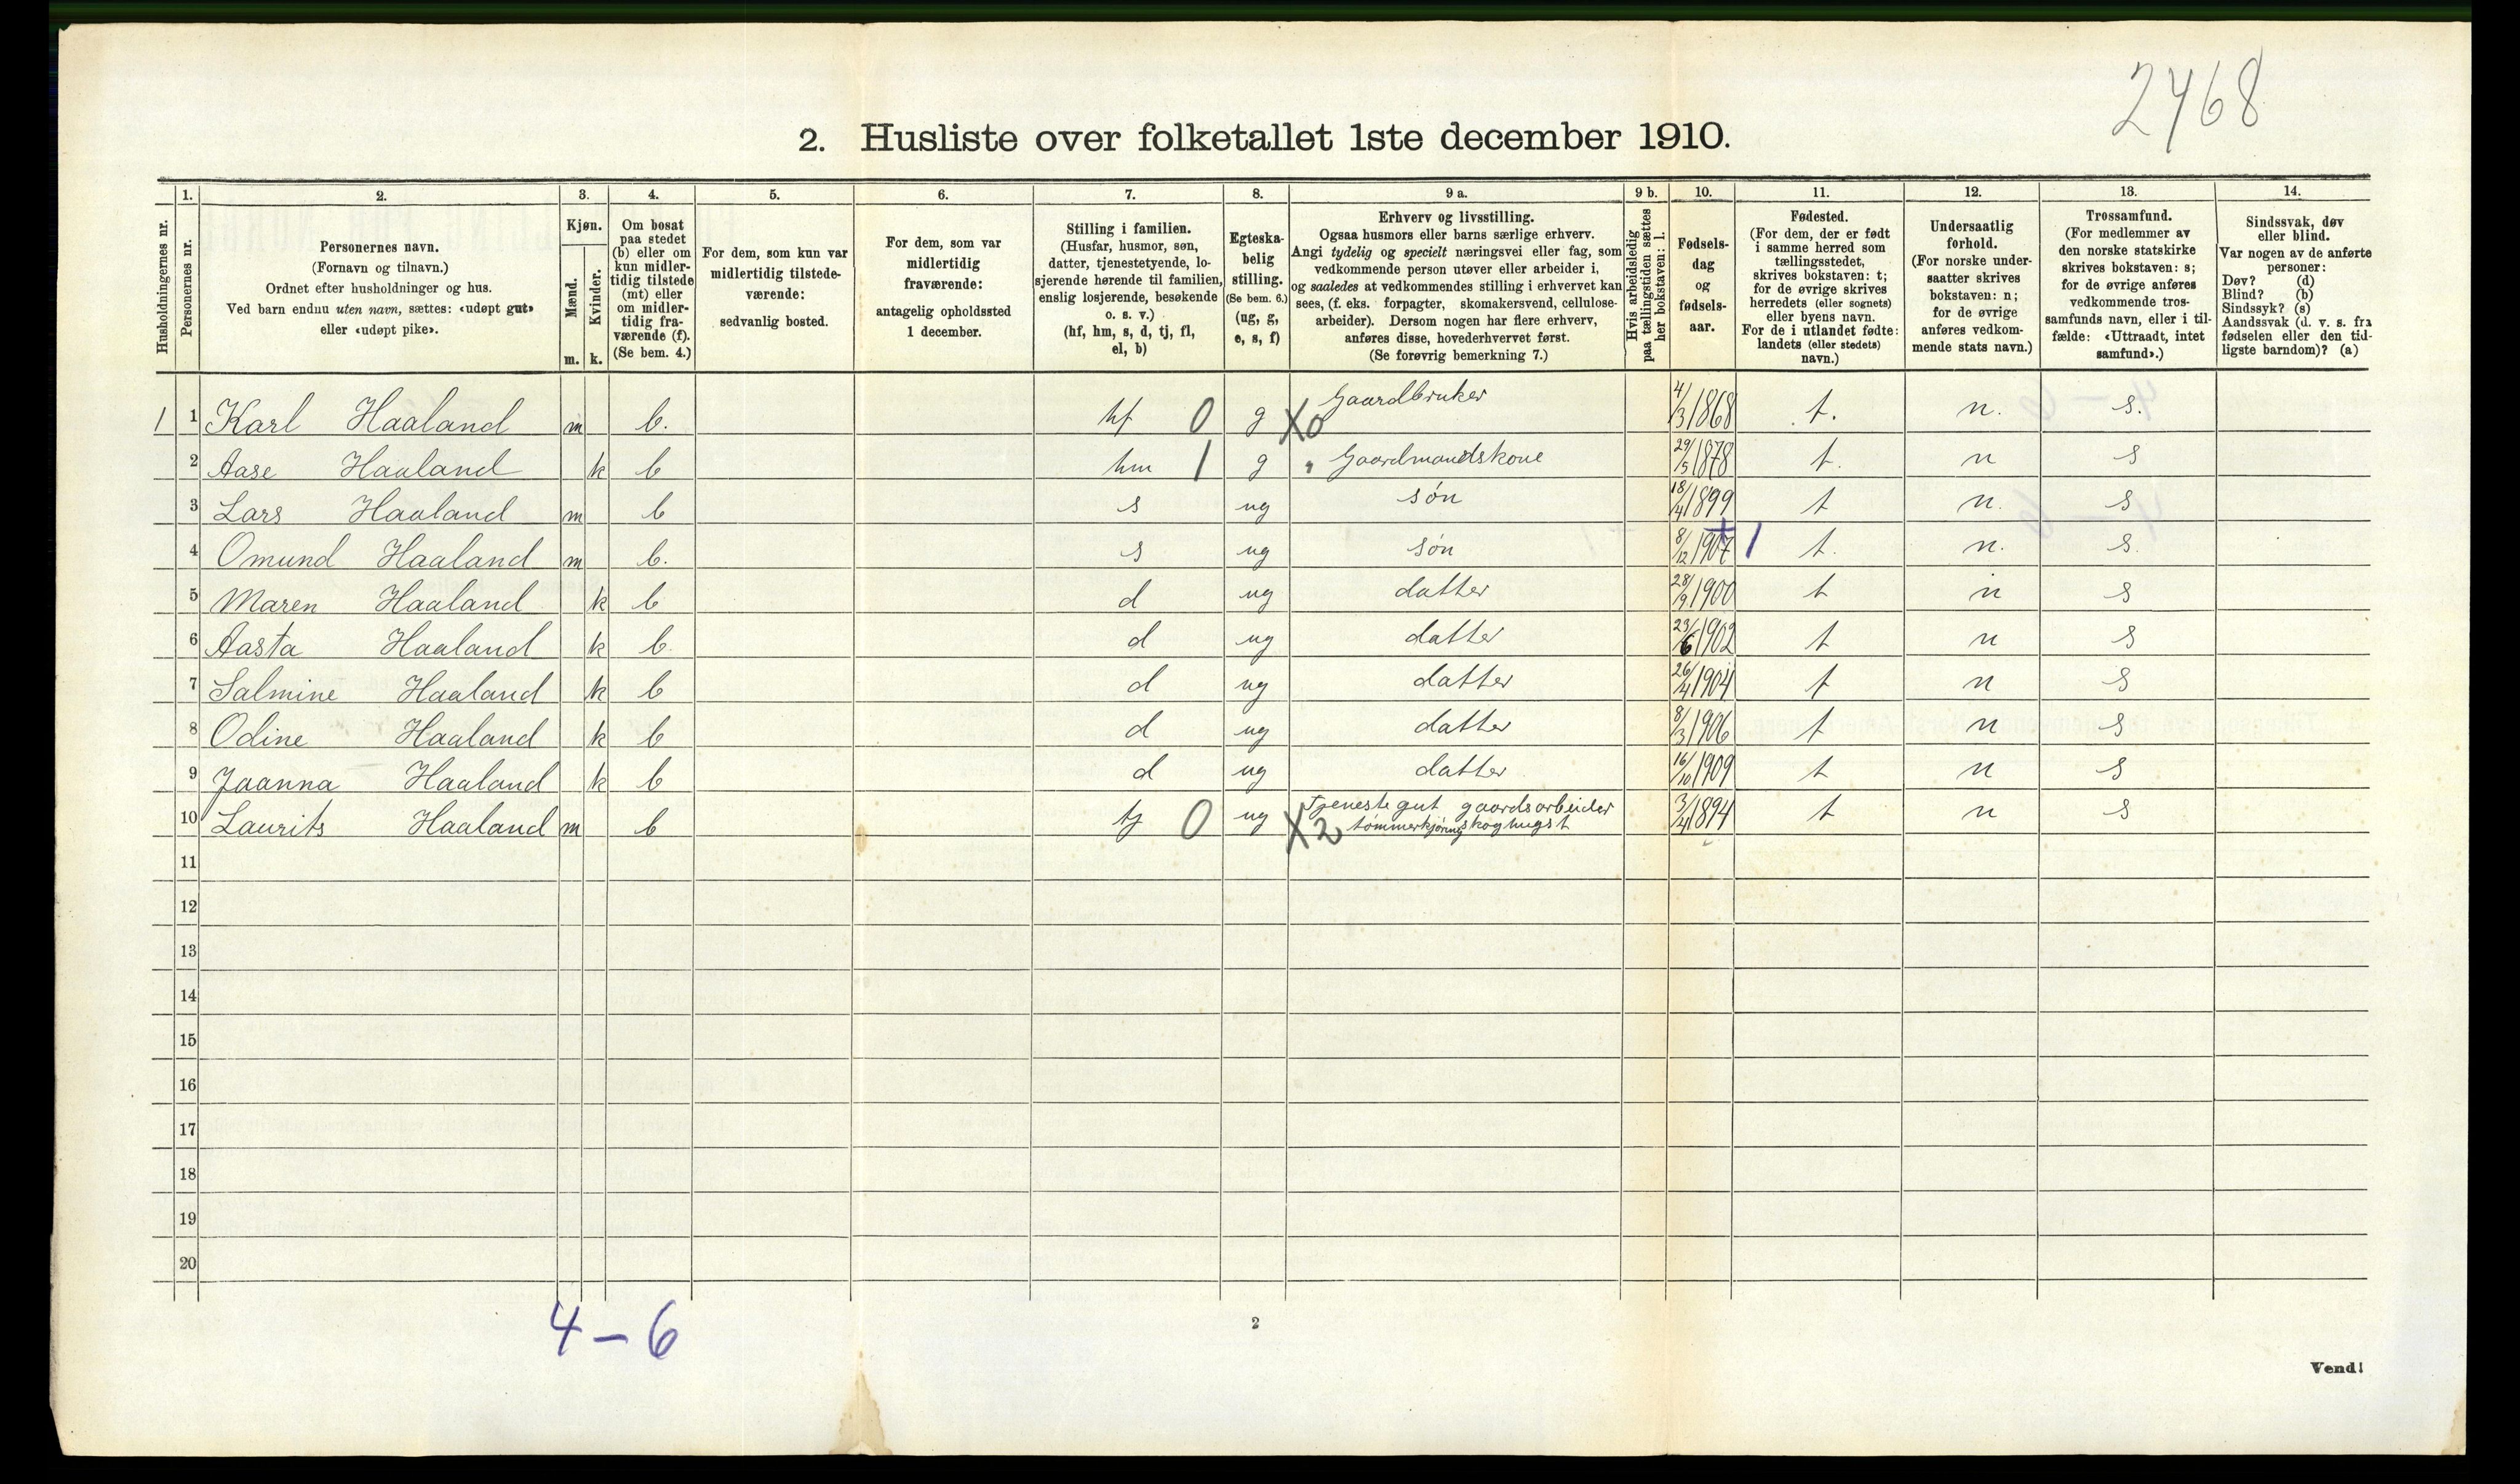 2468
2. Husliste over folketallet 1ste december 1910.
Husholdningernes nr.
1.
Personernes nr.
2.
Personernes navn.
(Fornavn og tilnavn.)
Ordnet efter husholdninger og hus.
Ved barn endnu uten navn, sættes: «udøpt gut»
eller «udøpt pike».
3.
Kjøn.
Mænd.
m.
Kvinder.
k.
4.
Om bosat
paa stedet
(b) eller om
kun midler-
tidig tilstede
(mt) eller
om midler-
tidig fra-
værende (f).
(Se bem. 4.)
5.
For dem, som kun var
midlertidig tilstede-
værende:
sedvanlig bosted.
6.
For dem, som var
midlertidig
fraværende:
antagelig opholdssted
1 december.
7.
Stilling i familien.
(Husfar, husmor, søn,
datter, tjenestetyende, lo-
sjerende hørende til familien,
enslig losjerende, besøkende
o. s. v.)
(hf, hm, s, d, tj, fl,
el, b)
8.
Egteska-
belig
stilling.
(Se bem. 6.)
(ug, g,
e, s, f)
9 a.
Erhverv og livsstilling.
Ogsaa husmors eller barns særlige erhverv.
Angi tydelig og specielt næringsvei eller fag, som
vedkommende person utøver eller arbeider i,
og saaledes at vedkommendes stilling i erhvervet kan
sees, (f. eks. forpagter, skomakersvend, cellulose-
arbeider). Dersom nogen har flere erhverv,
anføres disse, hovederhvervet først.
(Se forøvrig bemerkning 7.)
9 b.
Hvis arbeidsledig
paa tællingstiden sættes
her bokstaven: l.
10.
Fødsels-
dag
og
fødsels-
aar.
11.
Fødested.
(For dem, der er født
i samme herred som
tællingsstedet,
skrives bokstaven: t;
for de øvrige skrives
herredets (eller sognets)
eller byens navn.
For de i utlandet fødte:
landets (eller stedets)
navn.)
12.
Undersaatlig
forhold.
(For norske under-
saatter skrives
bokstaven: n;
for de øvrige
anføres vedkom-
mende stats navn.)
13.
Trossamfund.
(For medlemmer av
den norske statskirke
skrives bokstaven: s;
for de øvrige anføres
vedkommende tros-
samfunds navn, eller i til-
fælde: «Uttraadt, intet
samfund».)
14.
Sindssvak, døv
eller blind.
Var nogen av de anførte
personer:
Døv? (d)
Blind? (b)
Sindssyk? (s)
Aandssvak (d. v. s. fra
fødselen eller den tid-
ligste barndom)? (a)
1 1 Karl Haaland m b. hf 0 g X0 Gaardbruker 4/3 1868 t. n. s.
2 Aase Haaland k b hm 1 g " Gaardmandskone 29/5 1878 t. n s
3 Lars Haaland m b s ug søn 18/4 1899 t n. s
4 Omund Haaland m b. s ug søn 8/12 1907 1 t. n. s.
5 Maren Haaland k b d ug datter 28/9 1900 t n s
6 Aasta Haaland k b. d ug datter 23/6 1902 t n s
7 Salmine Haaland k b d ug datter 26/4 1904 t n s
8 Odine Haaland k b d ug datter 8/3 1906 t n s
9 Jaanna Haaland k b d ug datter 16/10 1909 t n s
10 Laurits Haaland m b tj 0 ug X2 Tjenestegut gaardsarbeider
tømmerkjøring skoghugst 3/4 1894 t n s
11
12
13
14
15
16
17
18
19
20
4 – 6
2
Vend!